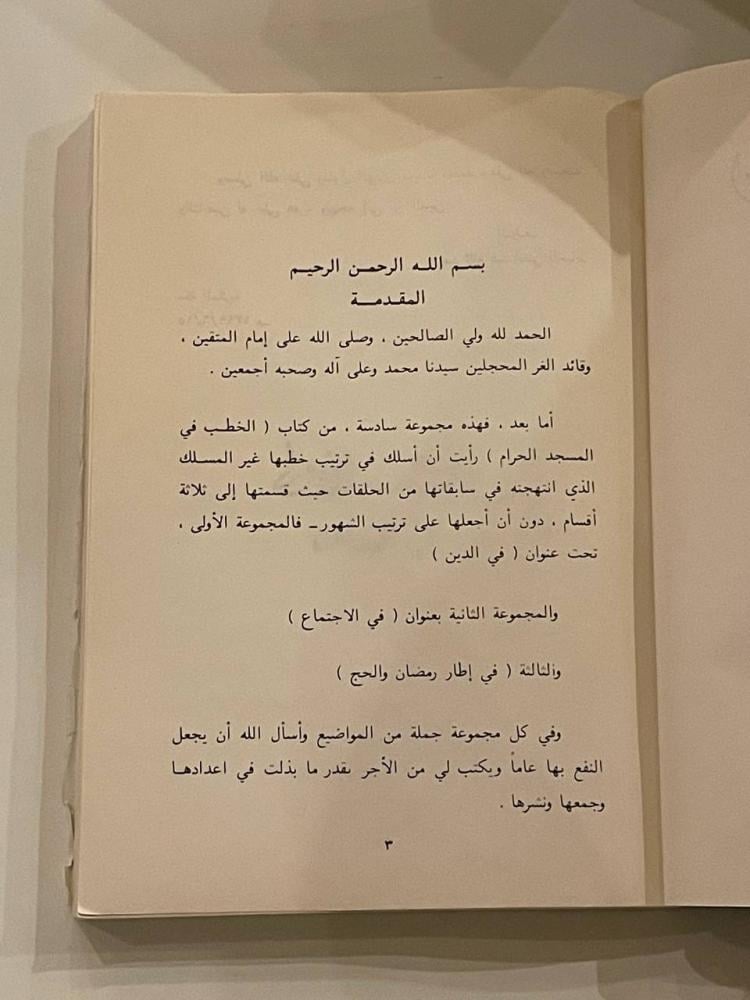 بسم الله الرحمن الرحيم
المقدمة
الحمد لله ولي الصالحين ، وصلى الله على إمام المتقين ،
وقائد الغر المحجلين سيدنا محمد وعلى آله وصحبه أجمعين .
أما بعد ، فهذه مجموعة سادسة ، من كتاب ( الخطب في
المسجد الحرام ) رأيت أن أسلك في ترتيب خطبها غير المسلك
الذي انتهجته في سابقاتها من الحلقات حيث قسمتها إلى ثلاثة
أقسام ، دون أن أجعلها على ترتيب الشهور ــ فالمجموعة الأولى ،
تحت عنوان ( في الدين )
والمجموعة الثانية بعنوان ( في الاجتماع )
والثالثة ( في إطار رمضان والحج )
وفي كل مجموعة جملة من المواضيع وأسأل الله أن يجعل
النفع بها عاماً ويكتب لي من الأجر بقدر ما بذلت في اعدادها
وجمعها ونشرها .
٣